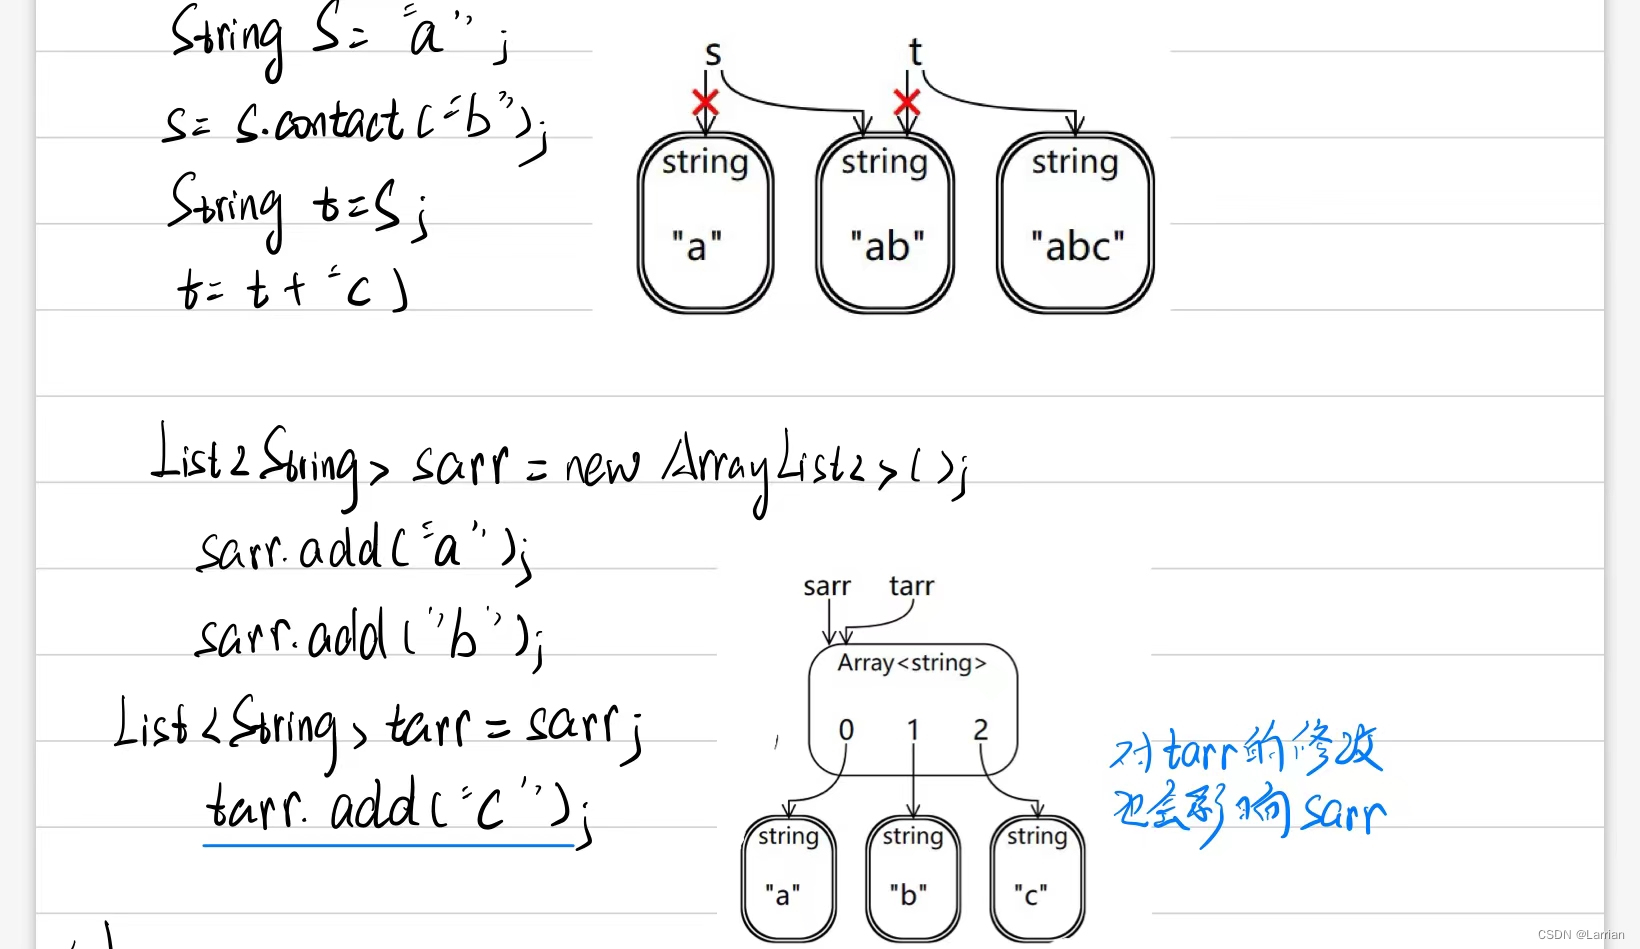 String S= "a";
s= s.contact("b");
String t=s;
t= t + "c)
s t
string string string
"a" "ab" "abc"
List<String> sarr = new ArrayList<>();
sarr.add("a");
sarr.add("b");
List<String> tarr = sarr;
tarr.add("c");
sarr tarr
Array<string>
0 1 2
string string string
"a" "b" "c"
对tarr的修改
也会影响sarr
CSDN @Larrian